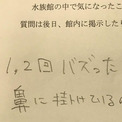 水族館の中で気になったこ
質問は後日、館内に掲示したり
1,2回 バズった
鼻に掛けている